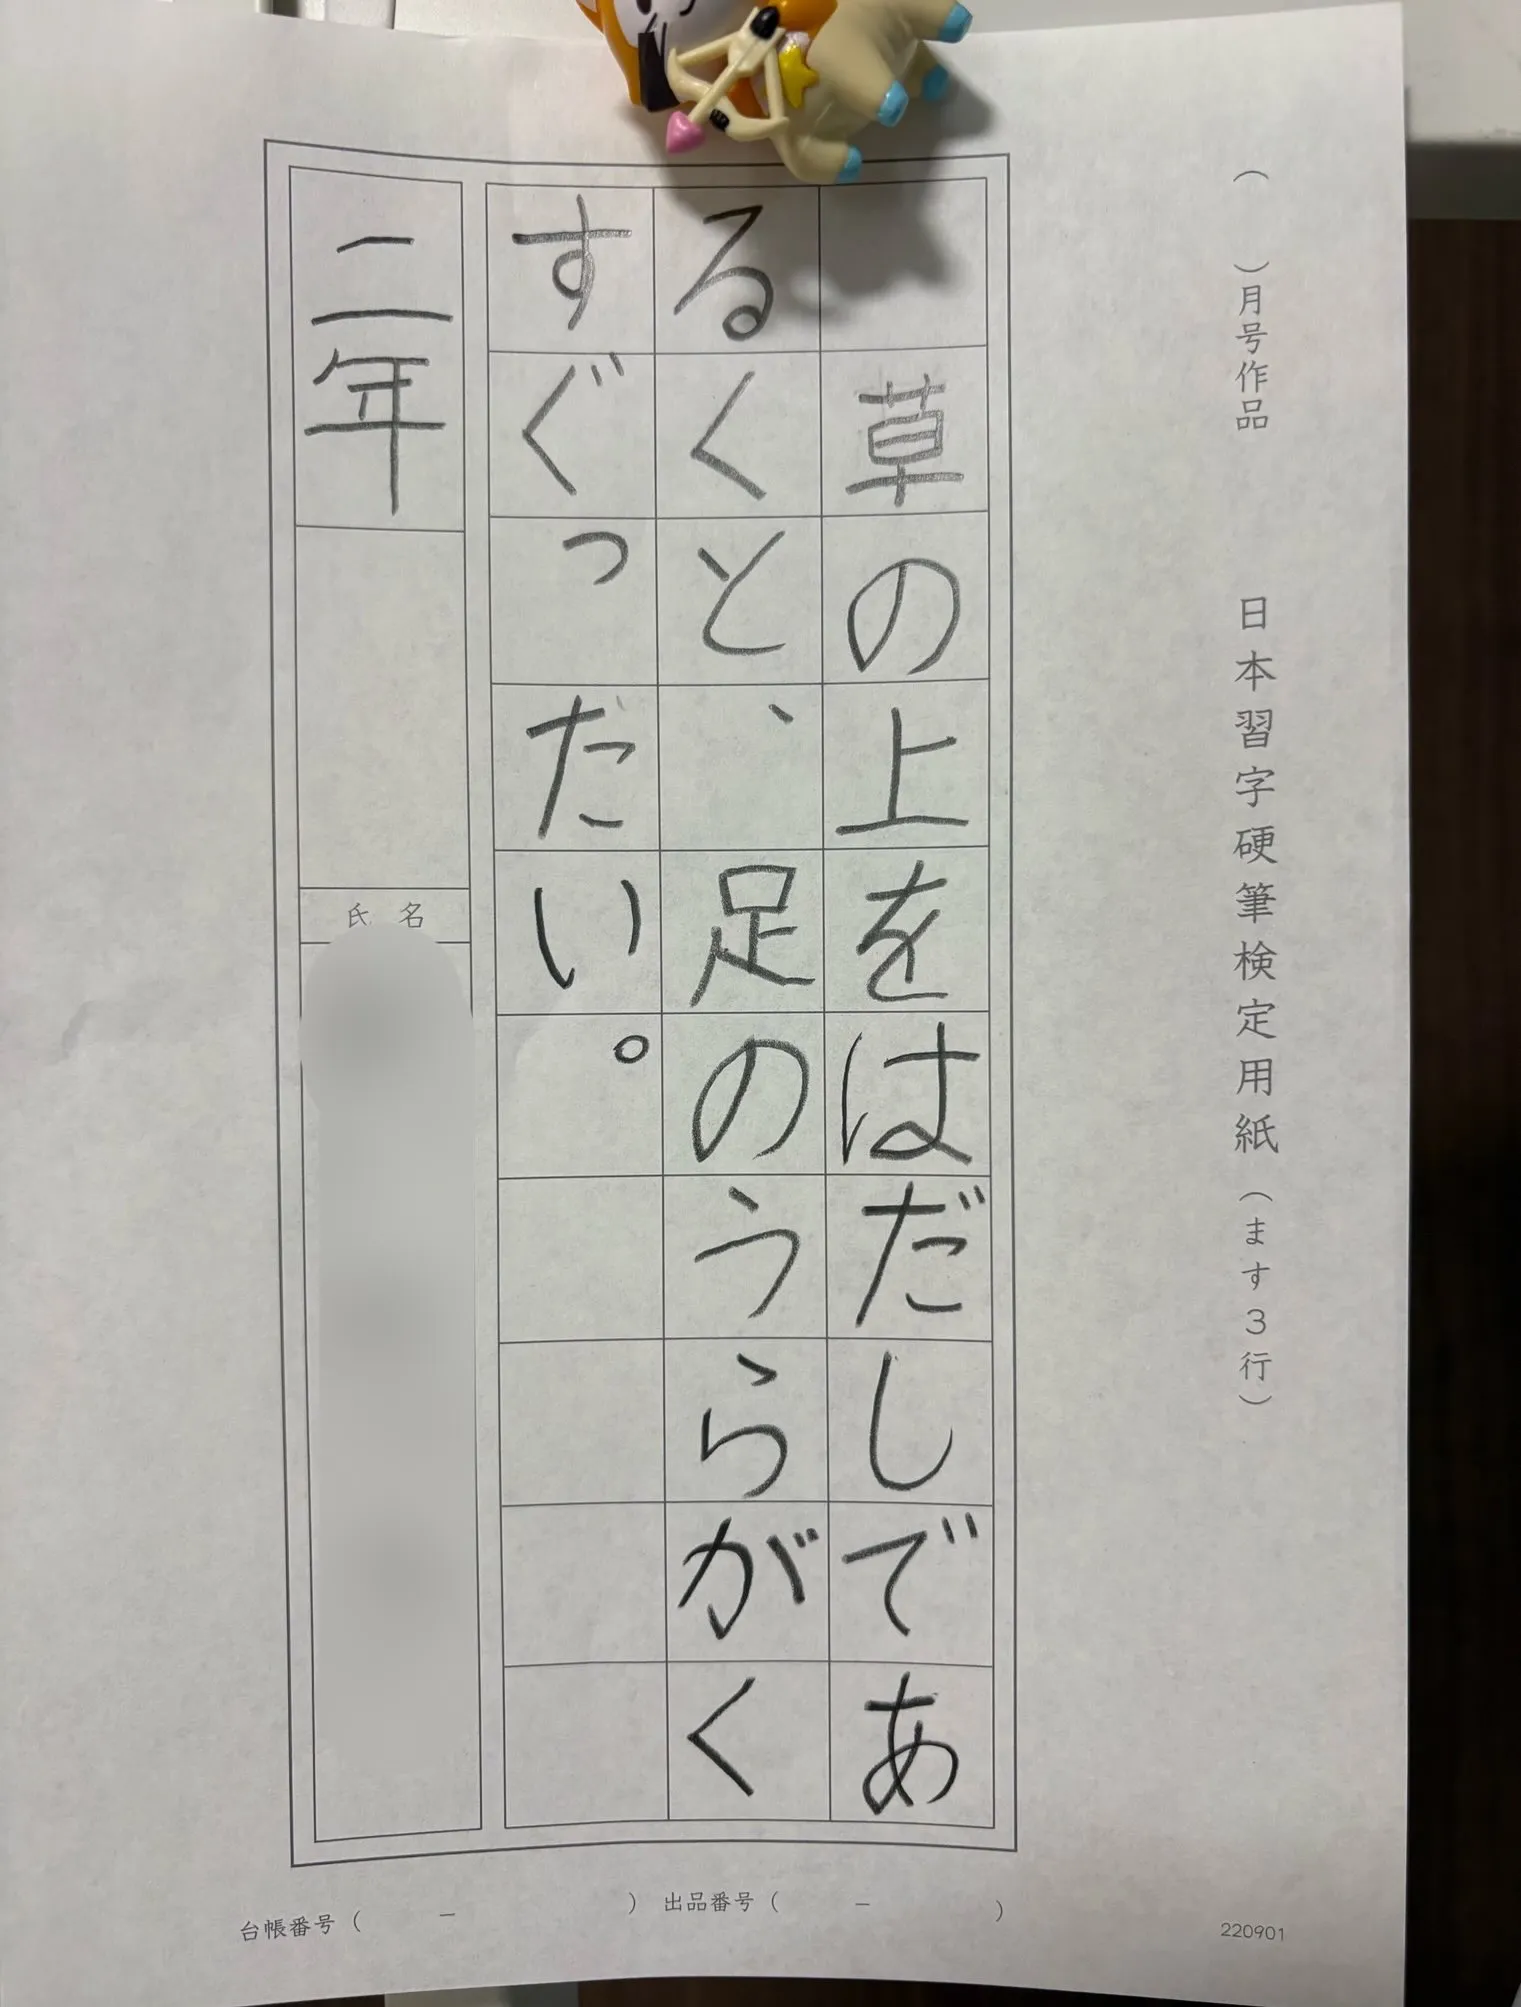 ( )月号作品 日本習字硬筆検定用紙(ます3行)
草の上をはだしであ
るくと、足のうらがく
すぐったい。
二年
氏名
台帳番号( - ) 出品番号( - )
220901